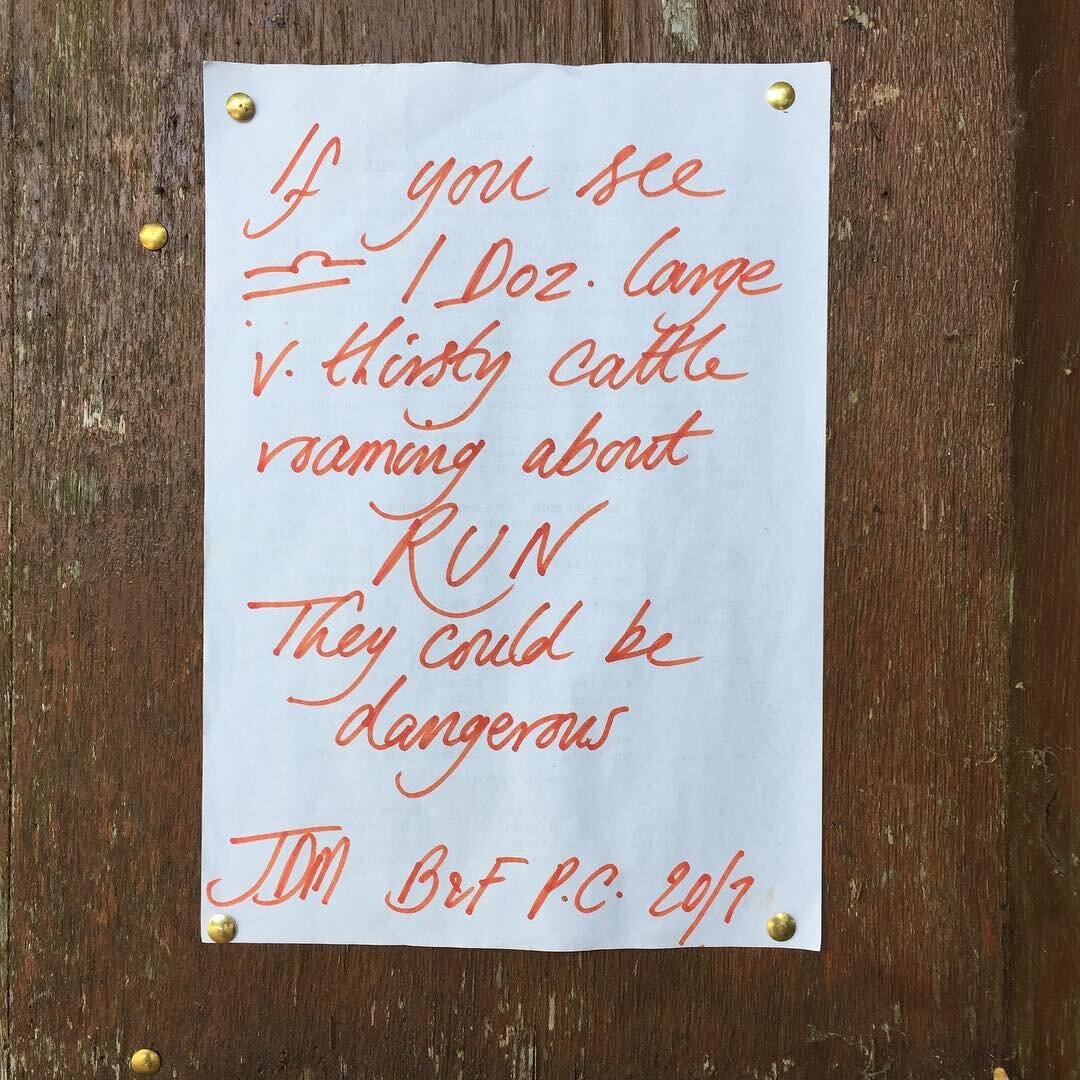 If you see
♎ 1 Doz. large
v. thirsty cattle
roaming about
RUN
They could be
dangerous
JDM B&F P.C. 20/7